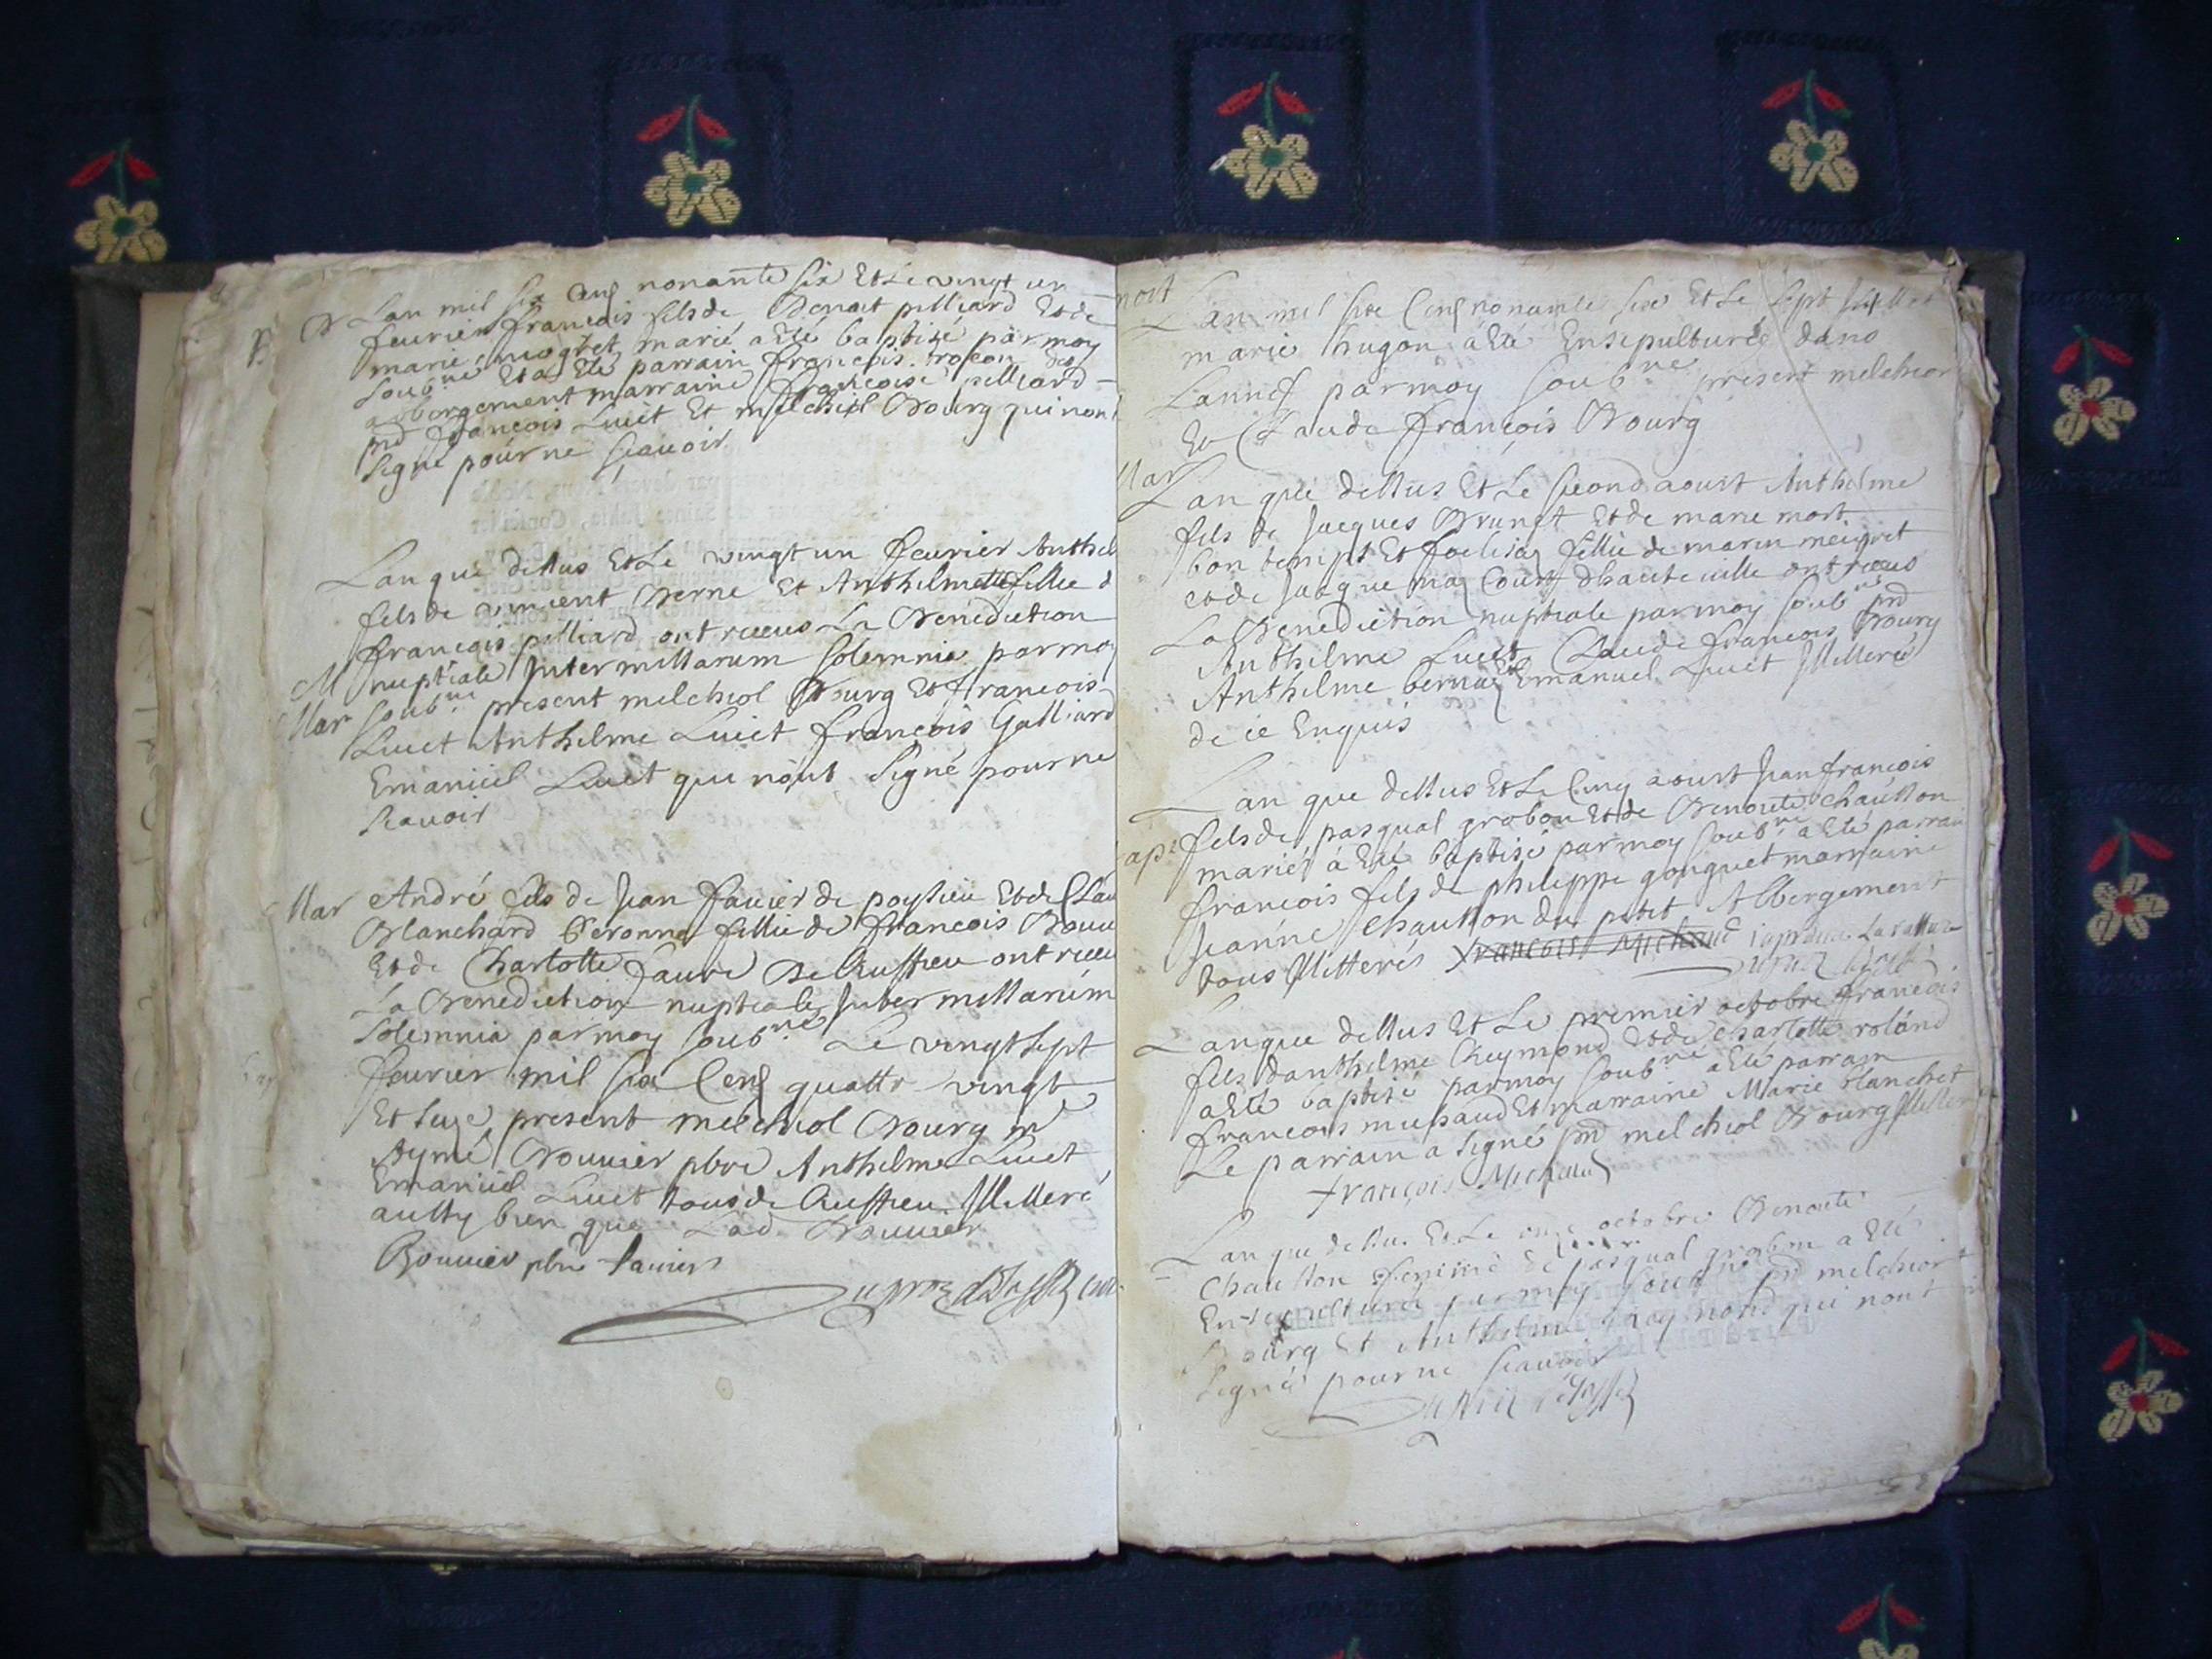 B Lan mil six Cens nonante six Et Le vingt un
feurier francois fils de Benoit pilliard Et de
marie mogret marié a Eté baptisé par moy
soubne Et a Eté parrain francois
abbergement marraine francoise pilliard
pnt francois Luiet Et melchiol Bourg qui nont
signé pour ne scauoir
Lan que dessus Et Le vingt un feurier Anthel
fils de vincent Berne Et Anthelmette fillie d
francois pilliard ont receus La Benediction
nuptiale Inter missarum solemnia par moy
Mar soubne present melchiol Bourg Et francois
Luiet Anthelme Luiet francois Galliard
Emanuel Luiet qui nont signé pour ne
scauoir
Mar André fils de Jean fauier de poysieu Et de Clau
Blanchard Peronne fillie de francois Bouu
Et de Charlotte faure De Ruffieu ont receu
La Benediction nuptiale Inter missarum
solemnia par moy soubne Le vingt sept
feurier mil six Cens quattr vingt
Et seze present melchiol Bourg mr
Aymé Bouuier pbre Anthelme Luiet
Emanuel Luiet tous de Ruffieu Illiteré
aussy bien que Lad Bouuier
Bouuier pbre fauier
mort
Lan mil six Cens nonante six Et Le sept Juillet
marie hugon a Eté Ensepulturée dans
par moy soubne present melchior
Et Claude francois Bourg
Mar
Lan que dessus Et Le second aoust Anthelme
fils de Jacques Brunet Et de marie mort
bon temps Et fillie de marin meigret
et de Jacquema Court dhauteuille ont receus
La Benediction nuptiale par moy soubne pnt
Anthelme Luiet Claude francois Bourg
Anthelme Emanuel Luiet Illiteré
de ce Enquis
Lan que dessus Et Le Cinq aoust Jean francois
bapt fils de pasqual grobon Et de Benoite chausson
mariés a Eté baptisé par moy soubne a Eté parrain
francois fils de philippe gonguet marraine
Jeanne chausson du petit Abbergement
tous Illiterés francois Michaud
Lan que dessus Et Le premier octobre francois
fils danthelme Reymond Et de charlotte roland
a Eté baptisé par moy soubne a Eté parrain
francois michaud Et marraine Marie blanchet
Le parrain a signé pnt melchiol Bourg Illiter
francois Michaud
Lan que dessus Et Le onze octobre Benoite
chausson femme de pasqual grobon a Eté
Ensepulturée par moy soubne pnt melchior
Bourg Et Anthelme reymond qui nont
signés pour ne scauoir